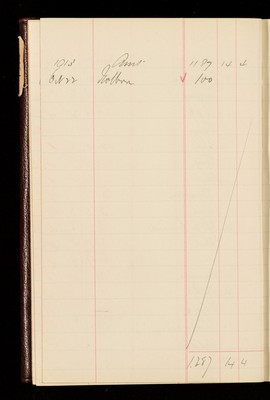 1918 Amt 1187 14 4
Oct 22 100
1287 14 4